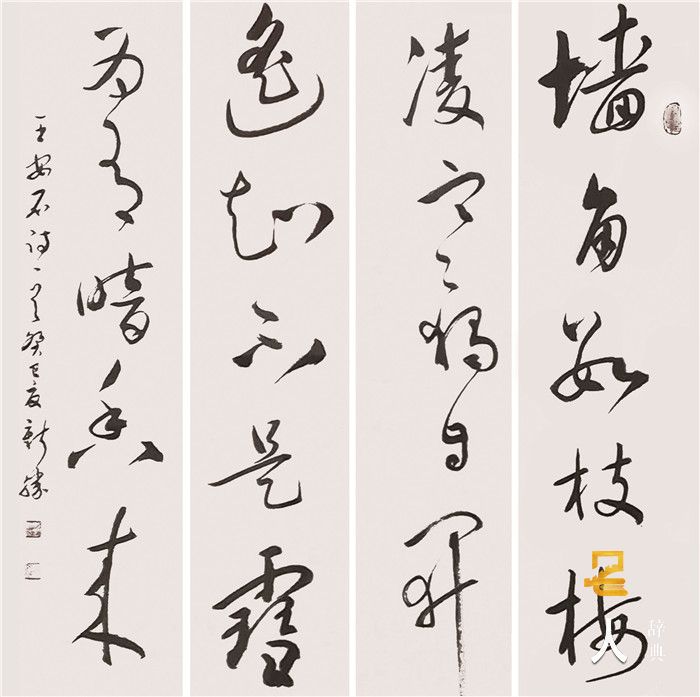 墙角数枝梅
凌寒独自开
遥知不是雪
为有暗香来
王安石诗一首癸巳夏新胜
名人
辞典